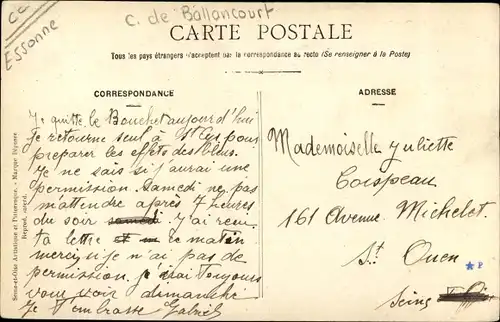 C. de Ballancourt
Essonne
CARTE POSTALE
Tous les pays étrangers n'acceptent pas la correspondance au recto (Se renseigner à la Poste)
CORRESPONDANCE
Je quitte le Bouchet aujourd'hui
Je retourne seul à St Cyr pour
préparer les effets des bleus.
Je ne sais si j'aurai une
permission. Samedi ne pas
m'attendre après 7 heures
du soir samedi J'ai reçu
ta lettre ce matin
merci si je n'ai pas de
permission je t'irai toujours
vous voir dimanche
Je t'embrasse Gabriel
ADRESSE
Mademoiselle Juliette
Coispeau
161 Avenue Michelet
St Ouen
Seine
Seine-et-Oise Artistique et Pittoresque. - Marque Déposée
Reprod. interd.